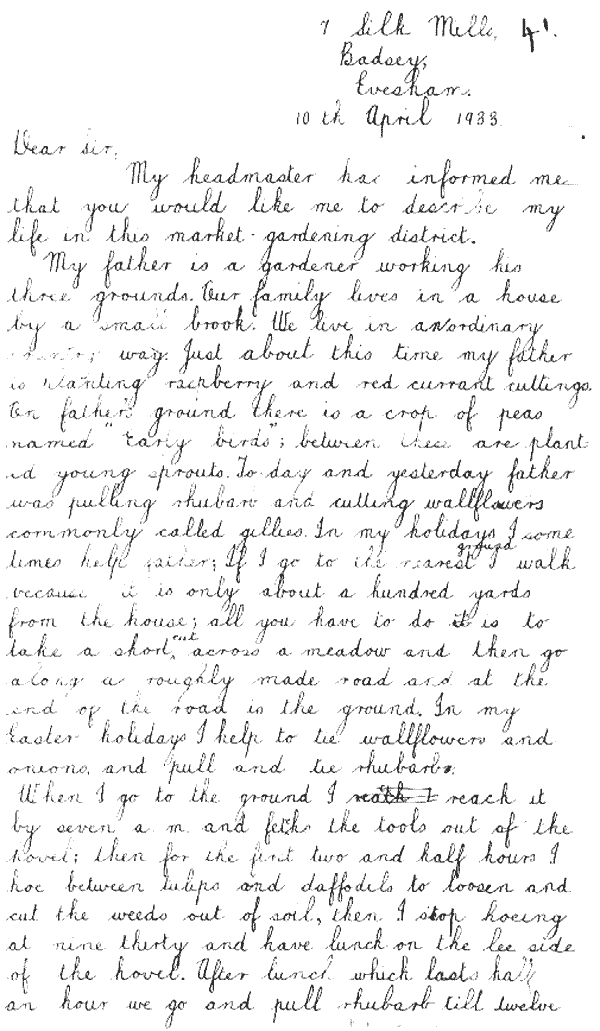 7 Silk Mills, 41.
Badsey,
Evesham.
10 th April 1933
Dear Sir,
My headmaster has informed me
that you would like me to describe my
life in this market-gardening district.
My father is a gardener working his
three grounds. Our family lives in a house
by a small brook. We live in an ordinary
way. Just about this time my father
is planting raspberry and red currant cuttings.
On father's ground there is a crop of peas
named "Early birds"; between these are plant
ed young sprouts. To-day and yesterday father
was pulling rhubarb and cutting wallflowers
commonly called gillies. In my holidays I some
times help father; If I go to the nearest ground I walk
because it is only about a hundred yards
from the house; all you have to do it is to
take a short cut across a meadow and then go
along a roughly made road and at the
end of the road is the ground. In my
Easter holidays I help to tie wallflowers and
onions, and pull and tie rhubarb.
When I go to the ground I reach it
by seven a.m. and fetch the tools out of the
hovel; then for the first two and half hours I
hoe between tulips and daffodils to loosen and
cut the weeds out of soil, then I stop hoeing
at nine thirty and have lunch on the lee side
of the hovel. After lunch which lasts half
an hour we go and pull rhubarb till twelve